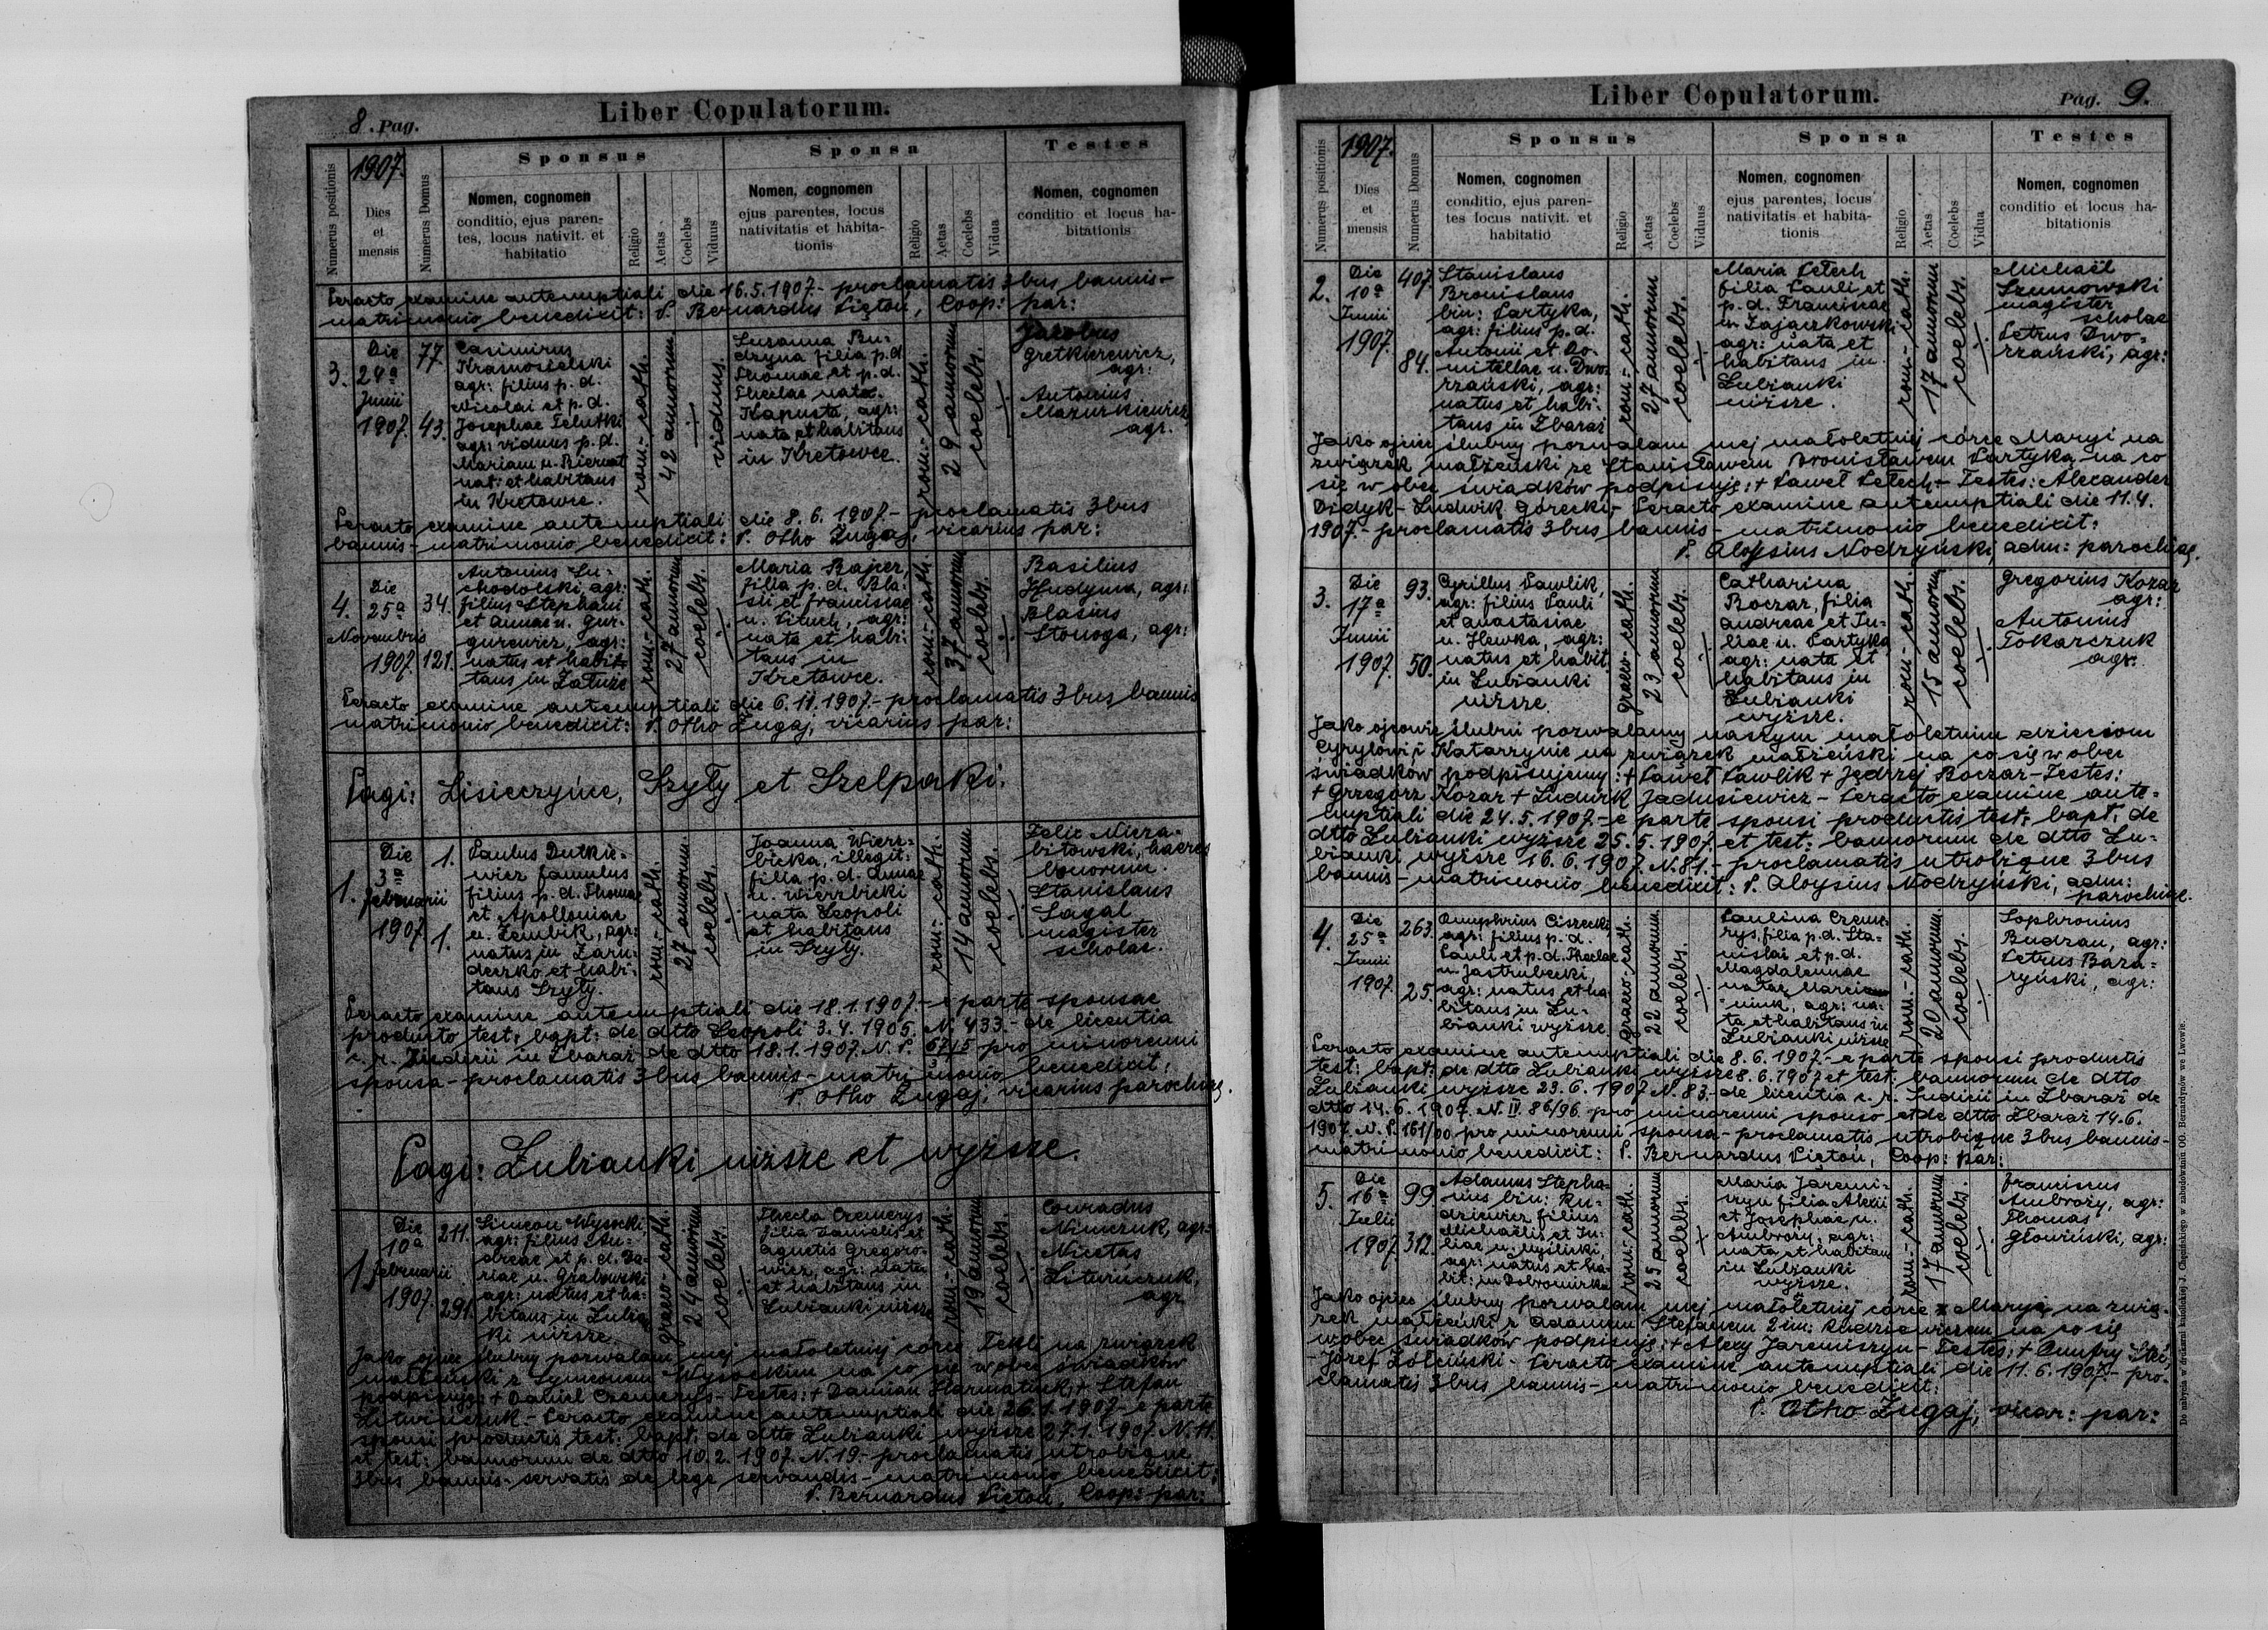 8. Pag.
Liber Copulatorum.
Numerus positionis
1907.
Dies
et
mensis
Numerus Domus
Sponsus
Nomen, cognomen
conditio, ejus paren-
tes, locus nativit. et
habitatio
Religio
Aetas
Coelebs
Viduus
Sponsa
Nomen, cognomen
ejus parentes, locus
nativitatis et habita-
tionis
Religio
Aetas
Coelebs
Vidua
Testes
Nomen, cognomen
conditio et locus ha-
bitationis
Peracto examine antenuptiali die 16.5.1907.- proclamatis 3bus bannis-
matrimonio benedixit: P. Bernardus Pięton, Coop: par:
3.
Die
24a
Junii
1907.
77.
43.
Casimirus
Krasnosielski
agr: filius p. d.
Nicolai et p. d.
Josephae Telutki
agr: viduus p. d.
Mariam u. Biernat
nat: et habitans
in Kretowce.
rom:-cath.
42 annorum
viduus.
Susanna Bu-
dzyna filia p. d.
Thomae et p. d.
Theclae nata
Kapusta, agr:
nata et habitans
in Kretowce.
rom:-cath.
29 annorum
coelebs.
Jacobus
Gretkierewicz,
agr:
Antonius
Mazurkiewicz
agr.
Peracto examine antenuptiali die 8.6.1907- proclamatis 3bus
bannis-matrimonio benedixit: P. Otho Zugaj, vicarius par:
4.
Die
25a
Novembris
1907.
34.
121.
Antonius Su-
chodolski, agr:
filius Stephani
et Annae u. Gur-
gurewicz, agr:
natus et habi-
tans in Załuże
rom:-cath.
27 annorum
coelebs.
Maria Bajer,
filia p. d. Bla-
sii et Franciscae
u. Pituch, agr:
nata et habi-
tans in
Kretowce.
rom:-cath.
37 annorum
coelebs.
Basilius
Hudyma, agr:
Blasius
Stonoga, agr:
Peracto examine antenuptiali die 6.11.1907.- proclamatis 3bus bannis
matrimonio benedixit: P. Otho Zugaj, vicarius par:
Pagi: Lisieczyńce, Szyły et Szelpaki.
1.
Die
3a
Februarii
1907.
1.
1.
Paulus Dutkie-
wicz famulus
filius p. d. Thomae
et Apolloniae
u. Zembik, agr:
natus in Zaru-
deczko et habi-
tans Szyły.
rom:-cath.
27 annorum
coelebs.
Joanna Wierz-
bicka, illegit:
filia p. d. Annae
u. Wierzbicki
nata Leopoli
et habitans
in Szyły.
rom:-cath.
14 annorum
coelebs.
Felix Nieza-
bitowski, haeres
bonorum.
Stanislaus
Sagal
magister
scholae.
Peracto examine antenuptiali die 18.1.1907.- e parte sponsae
producto test: bapt: de dtto Leopoli 3.4.1905. N. 433.- de licentia
c. r. Judicii in Zbaraż de dtto 18.1.1907. N. P. 67/5 pro minorenni
sponsa-proclamatis 3bus bannis-matrimonio benedixit:
P. Otho Zugaj, vicarius parochiae.
Pagi: Łubianki niższe et wyższe.
1.
Die
10a
Februarii
1907.
211.
291.
Simeon Wysocki,
agr: filius An-
dreae et p. d. Da-
riae u. Grabowski
agr: natus et ha-
bitans in Łubian
ki niższe.
graeco-cath.
24 annorum
coelebs.
Thecla Czemerys
filia Danielis et
Agnetis Gregoro-
wicz, agr: nata
et habitans in
Łubianki niższe
rom:-cath.
19 annorum
coelebs.
Conradus
Nimczuk, agr:
Nicetas
Lituńczuk,
agr
Jako ojciec ślubny pozwalam mej małoletniej córce Tekli na związek
małżeński z Symeonem Wysockim na co się wobec świadków
podpisuję: + Daniel Czemerys-Testes: + Damian Harmatiuk, + Stefan
Litwińczuk - Peracto examine antenuptiali die 26.1.1907- e parte
sponsi productis test: bapt: de dtto Łubianki wyższe 27.1.1907. N. 11.
et test: bannorum de dtto 10.2.1907. N. 19.- proclamatis utrobique
3bus bannis-servatis de lege servandis-matrimonio benedixit:
P. Bernardus Pięton, Coop: par:
Liber Copulatorum.
Pag. 9.
Numerus positionis
1907.
Dies
et
mensis
Numerus Domus
Sponsus
Nomen, cognomen
conditio, ejus paren-
tes locus nativit. et
habitatio
Religio
Aetas
Coelebs
Viduus
Sponsa
Nomen, cognomen
ejus parentes, locus
nativitatis et habita-
tionis
Religio
Aetas
Coelebs
Vidua
Testes
Nomen, cognomen
conditio et locus ha-
bitationis
2.
Die
10a
Junii
1907.
407.
84.
Stanislaus
Bronislaus
bin: Partyka,
agr: filius p. d.
Antonii et Do-
mitellae u. Dwo-
rzański, agr:
natus et habi-
tans in Zbaraż
rom:-cath.
27 annorum
coelebs.
Maria Petech
filia Pauli et
p. d. Franciscae
u. Zajączkowski
agr: nata et
habitans in
Łubianki
niższe.
rom:-cath.
17 annorum
coelebs.
Michaël
Szumowski
magister
scholae
Petrus Dwo-
rzański, agr:
Jako ojciec ślubny pozwalam mej małoletniej córce Maryi na
związek małżeński ze Stanisławem Bronisławem Partyką na co
się wobec świadków podpisuję: + Paweł Petech- Testes: Alexander
Didyk- Ludwik Górecki- Peracto examine antenuptiali die 11.4.
1907.- proclamatis 3bus bannis- matrimonio benedixit:
P. Aloysius Nodzyński, adm: parochiae.
3.
Die
17a
Junii
1907.
93.
50.
Cyrillus Pawlik,
agr: filius Pauli
et Anastasiae
u. Hewka, agr:
natus et habit:
in Łubianki
niższe.
graeco-cath.
23 annorum
coelebs.
Catharina
Boczar, filia
Andreae et Ju-
liae u. Partyka
agr: nata et
habitans in
Łubianki
wyższe.
rom:-cath.
15 annorum
coelebs.
Gregorius Kozar
agr:
Antonius
Tokarczuk
agr.
Jako ojcowie ślubni pozwalamy naszym małoletnim dzieciom
Cyrylowi i Katarzynie na związek małżeński na co się wobec
świadków podpisujemy: + Paweł Pawlik + Jędrzej Boczar-Testes:
+ Grzegórz Kozar + Ludwik Jadusiewicz - Peracto examine ante-
nuptiali die 24.5.1907.- e parte sponsi productis test: bapt: de
dtto Łubianki wyższe 25.5.1907. et test: bannorum de dtto Łu-
bianki wyższe 16.6.1907. N. 81.- proclamatis utrobique 3bus
bannis - matrimonio benedixit: P. Aloysius Nodzyński, adm:
parochiae.
4.
Die
25a
Junii
1907
263.
25.
Onuphrius Ciszecki
agr: filius p. d.
Pauli et p. d. Theclae
u. Jastrubecki,
agr: natus et ha-
bitans in Łu-
bianki wyższe
graeco-cath.
22 annorum
coelebs.
Paulina Czeme
rys, filia p. d. Sta-
nislai et p. d.
Magdalennae
natae Marcin
niuk, agr: na-
ta et habitans in
Łubianki niższe
rom:-cath.
20 annorum.
coelebs.
Sophronius
Budzan, agr:
Petrus Baza-
ryński, agr:
Peracto examine antenuptiali die 8.6.1907.- e parte sponsi productis
test: bapt: de dtto Łubianki wyższe 8.6.1907 et test: bannorum de dtto
Łubianki wyższe 23.6.1907. N. 83.- de licentia c. r. Judicii in Zbaraż de
dtto 14.6.1907. N. IV. 86/96.- pro minorenni sponso et de dtto Zbaraż 14.6.
1907. N. P. 161/00 pro minorenni sponsa- proclamatis utrobique 3bus bannis-
matrimonio benedixit: P. Bernardus Pięton, Coop: par:
5.
Die
16a
Julii
1907.
99.
312.
Adamus Stepha-
nus bin: Ku-
dziewicz filius
Michaëlis et Ju-
liae u.
agr: natus et ha-
bit: in Dobromirka
rom:-cath.
25 annorum
coelebs.
Maria Jaremi-
szyn filia Alexii
et Josephae u.
Ambroży, agr:
nata et habitans
in Łubianki
wyższe.
rom:-cath.
17 annorum
coelebs.
Franciscus
Ambroży, agr:
Thomas
Głowiński, agr:
Jako ojciec ślubny pozwalam mej małoletniej córce Maryi na zwią-
zek małżeński z Adamem Stefanem 2im: Kudziewiczem na co się
wobec świadków podpisuję: + Alexy Jaremiszyn- Testes: + Onufry
-Józef Żółciński- Peracto examine antenuptiali die 11.6.1907.- pro-
clamatis 3bus bannis-matrimonio benedixit:
P. Otho Zugaj, vicar: par:
Do nabycia w drukarni katolickiej J. Chęcińskiego w zabudowaniu OO. Bernardynów we Lwowie.